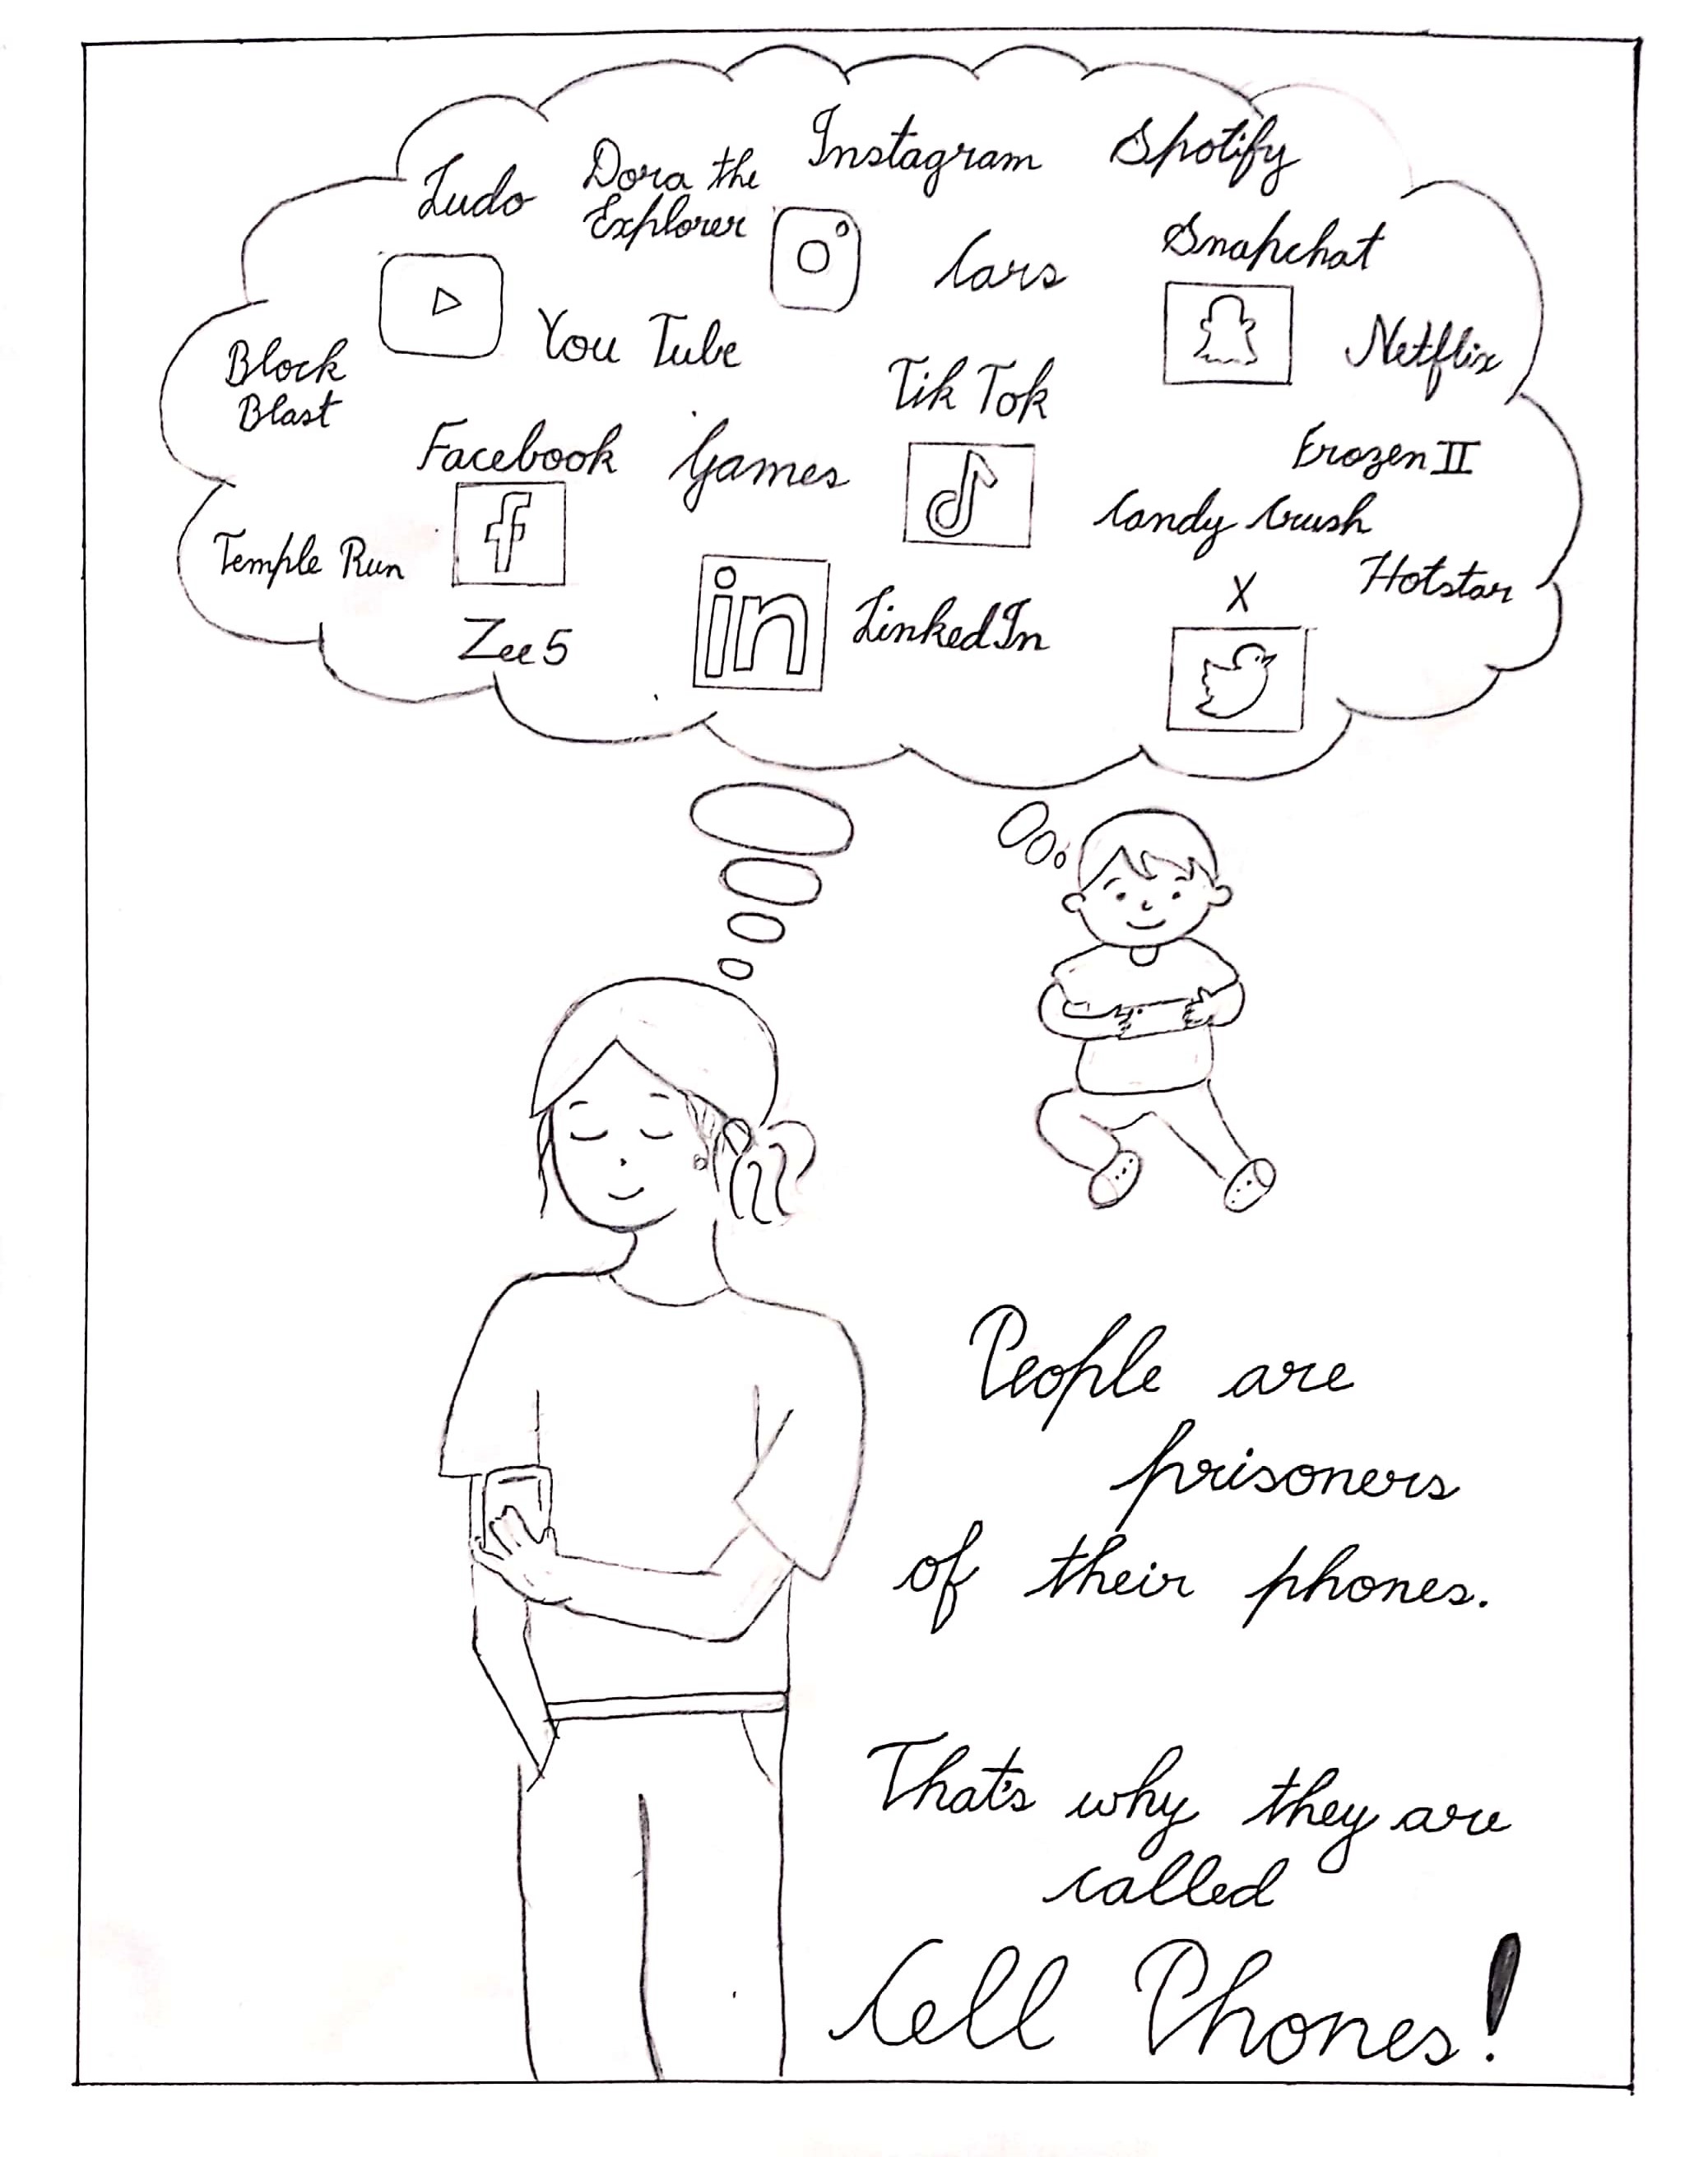 Ludo
Dora the
Explorer
Instagram
Spotify
Cars
Snapchat
You Tube
Netflix
Block
Blast
Tik Tok
Facebook
Games
Frozen II
Candy Crush
Temple Run
f
Hotstar
X
Zee5
in
LinkedIn
People are
prisoners
of their phones.
That's why they are
called
Cell Phones!